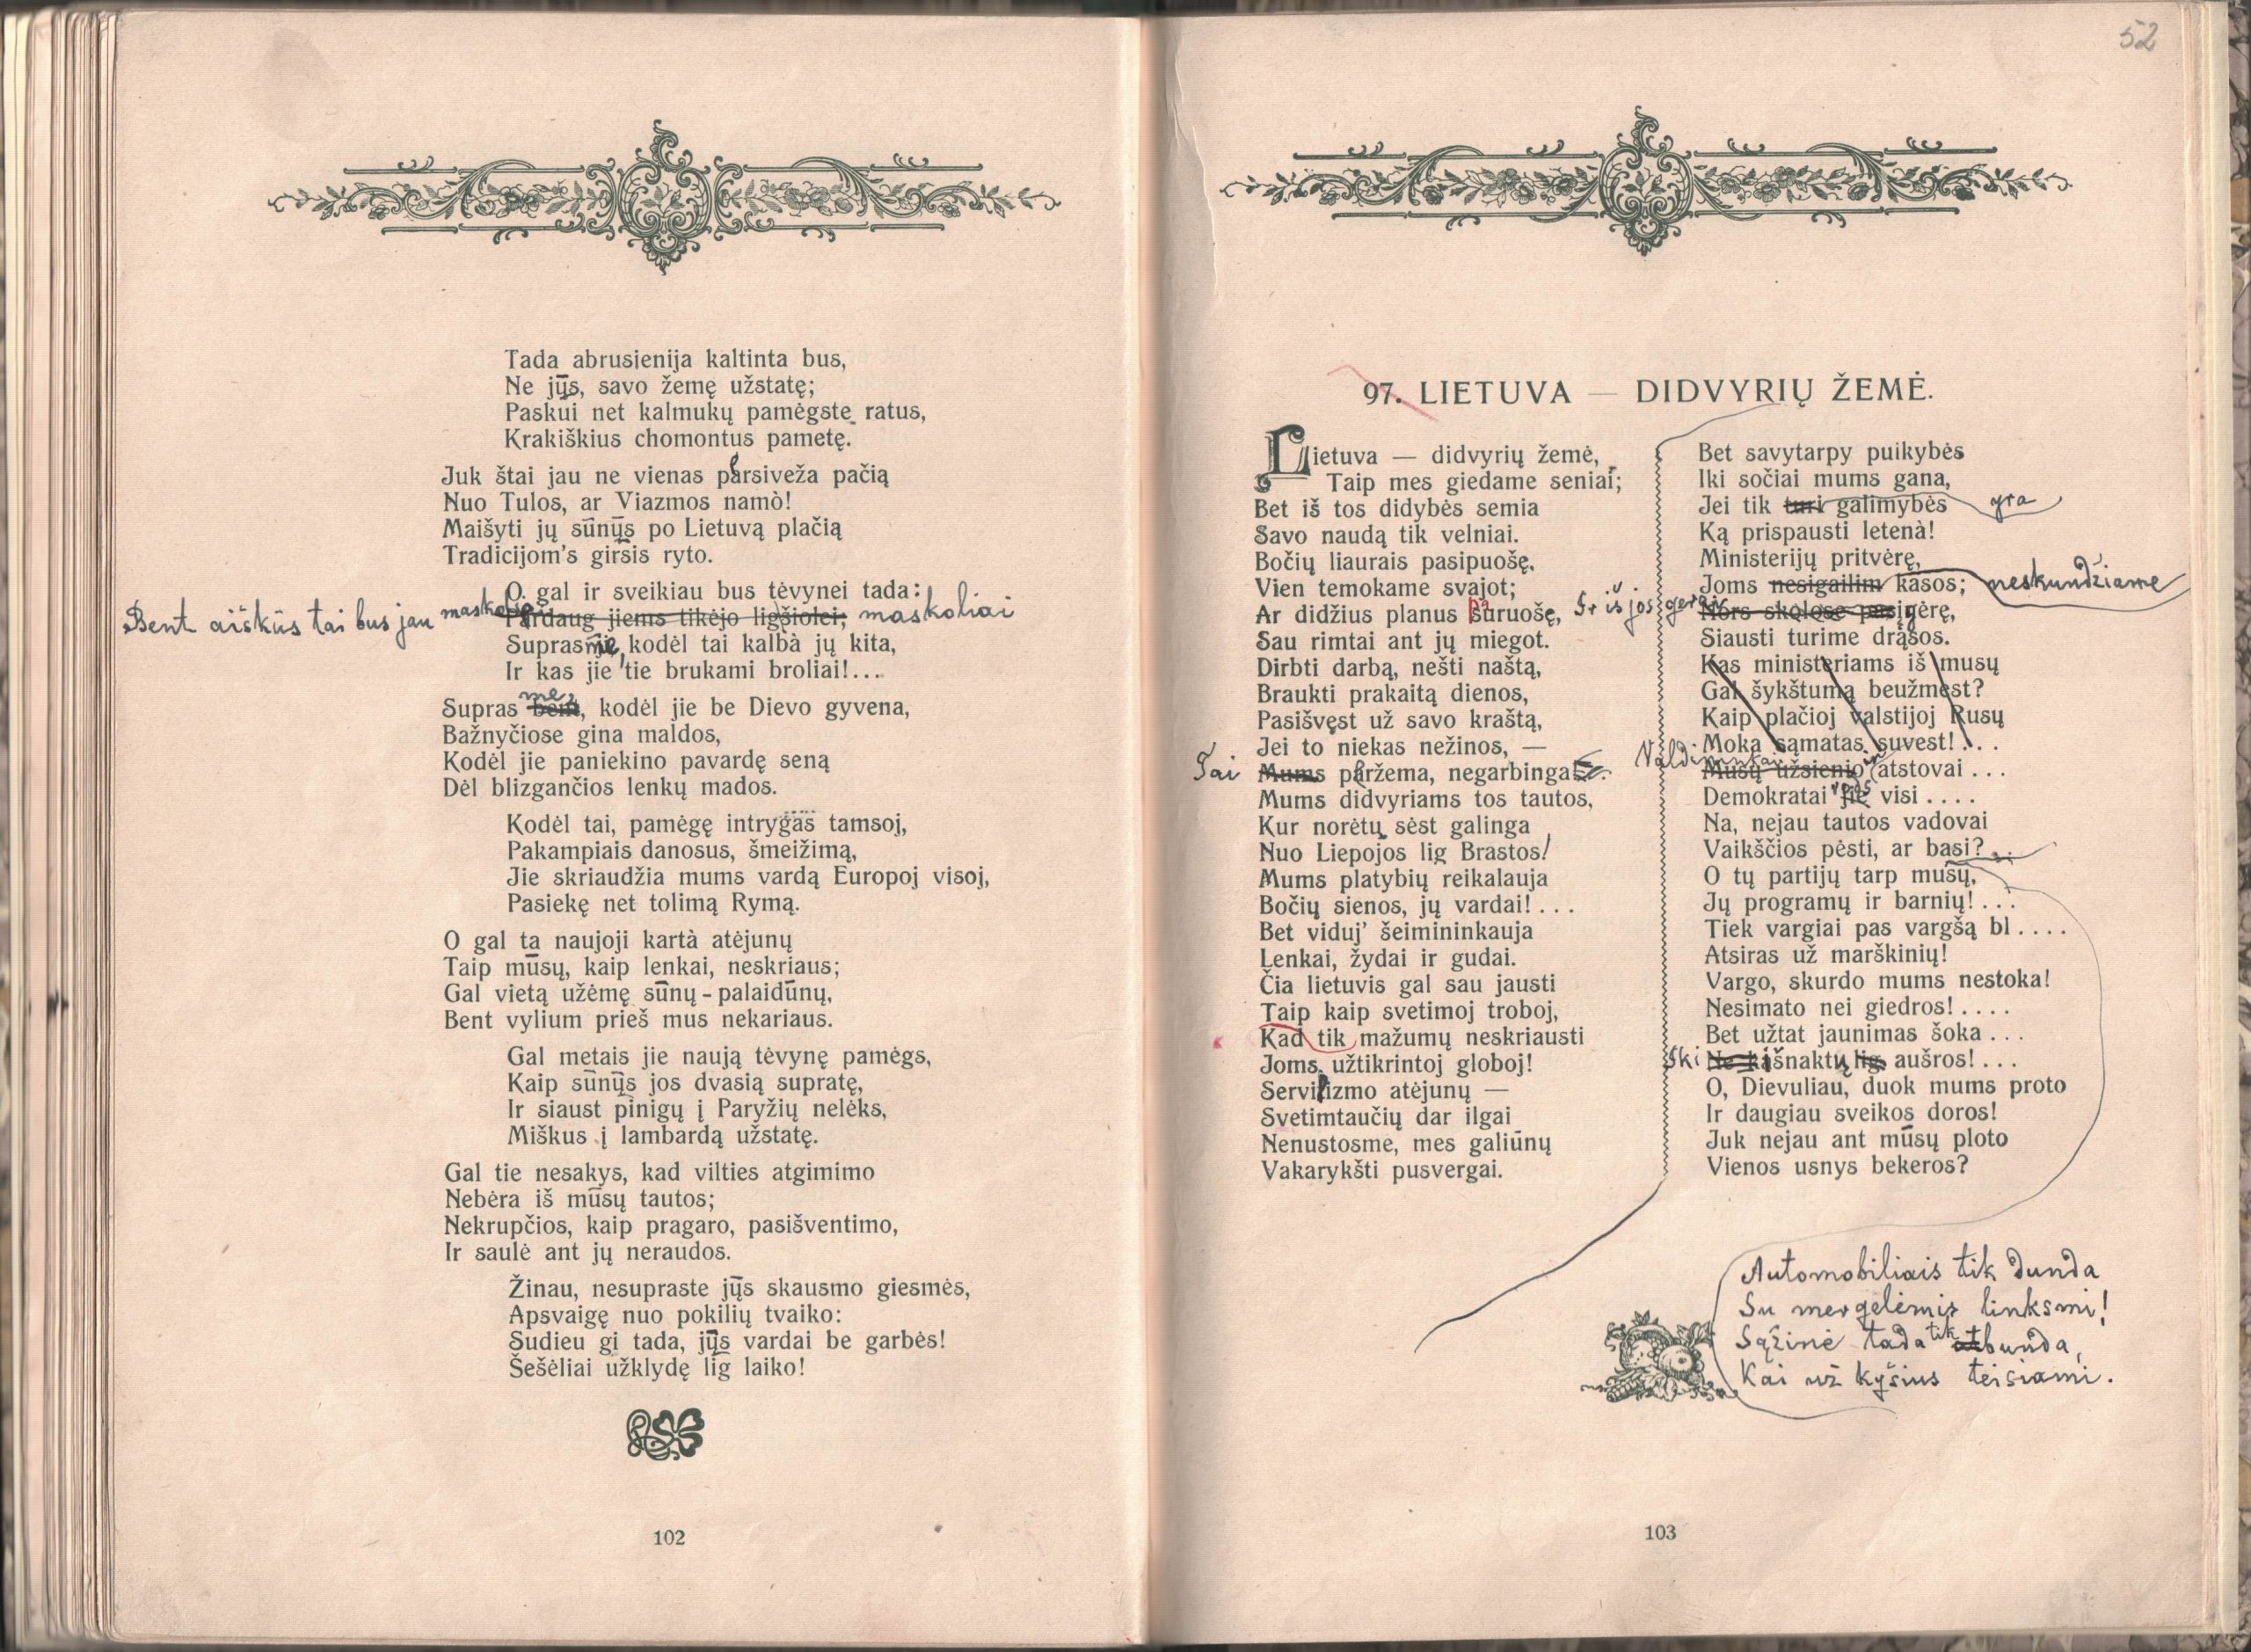 Tada abrusienija kaltinta bus,
Ne jųs, savo žemę užstatę;
Paskui net kalmukų pamėgste ratus,
Krakiškius chomontus pametę.
Juk štai jau ne vienas parsiveža pačią
Nuo Tulos, ar Viazmos namò!
Maišyti jų sūnųs po Lietuvą plačią
Tradicijom's girsis ryto.
O gal ir sveikiau bus tėvynei tada:
Bent aiškus tai bus jau maskoliai
Perdaug jiems tikėjo ligšiolei;
maskoliai
Suprasme, kodėl tai kalbà jų kita,
Ir kas jie tie brukami broliai!...
Supras me, kodėl jie be Dievo gyvena,
Bažnyčiose gina maldos,
Kodėl jie paniekino pavardę seną
Dėl blizgančios lenkų mados.
Kodėl tai, pamėgę intrygas tamsoj,
Pakampiais danosus, šmeižimą,
Jie skriaudžia mums vardą Europoj visoj,
Pasiekę net tolimą Rymą.
O gal ta naujoji kartà atėjunų
Taip mūsų, kaip lenkai, neskriaus;
Gal vietą užėmę sūnų-palaidūnų,
Bent vylium prieš mus nekariaus.
Gal metais jie naują tėvynę pamėgs,
Kaip sūnųs jos dvasią supratę,
Ir siaust pinigų į Paryžių nelėks,
Miškus į lambardą užstatę.
Gal tie nesakys, kad vilties atgimimo
Nebėra iš mūsų tautos;
Nekrupčios, kaip pragaro, pasišventimo,
Ir saulė ant jų neraudos.
Žinau, nesupraste jųs skausmo giesmės,
Apsvaigę nuo pokilių tvaiko:
Sudieu gi tada, jųs vardai be garbės!
Šešėliai užklydę lig laiko!
102
52
97. LIETUVA — DIDVYRIŲ ŽEMĖ.
Lietuva — didvyrių žemė,
Taip mes giedame seniai;
Bet iš tos didybės semia
Savo naudą tik velniai.
Bočių liaurais pasipuošę,
Vien temokame svajot;
Ar didžius planus suruošę,
Sau rimtai ant jų miegot.
Dirbti darbą, nešti naštą,
Braukti prakaitą dienos,
Pasišvęst už savo kraštą,
Jei to niekas nežinos, —
Tai Mums paržema, negarbinga
Mums didvyriams tos tautos,
Kur norėtų sėst galinga
Nuo Liepojos lig Brastos!
Mums platybių reikalauja
Bočių sienos, jų vardai!...
Bet viduj' šeimininkauja
Lenkai, žydai ir gudai.
Čia lietuvis gal sau jausti
Taip kaip svetimoj troboj,
Kad tik mažumų neskriausti
Joms užtikrintoj globoj!
Servilizmo atėjunų —
Svetimtaučių dar ilgai
Nenustosme, mes galiūnų
Vakarykšti pusvergai.
Bet savytarpy puikybės
Iki sočiai mums gana,
Jei tik turi galimybės yra
Ką prispausti letenà!
Ministerijų pritvėrę,
Joms nesigailim kasos; neskundžiame
Ir iš jos gerai
Nors skolose pasigėrę,
Siausti turime drąsos.
Kas ministeriams iš musų
Gal šykštumą beužmest?
Kaip plačioj valstijoj Rusų
Moka sąmatas suvest!...
Valdininkai ir
Mūsų užsienio atstovai...
Demokratai jie visi....
Na, nejau tautos vadovai
Vaikščios pėsti, ar basi?
O tų partijų tarp musų,
Jų programų ir barnių!...
Tiek vargiai pas vargšą bl....
Atsiras už marškinių!
Vargo, skurdo mums nestoka!
Nesimato nei giedros!....
Bet užtat jaunimas šoka...
Iki Ne kišnaktų lig aušros!...
O, Dievuliau, duok mums proto
Ir daugiau sveikos doros!
Juk nejau ant mūsų ploto
Vienos usnys bekeros?
Automobiliais tik dunda
Su mergelėmis linksmi!
Sąžinė tada tik atbunda,
Kai už kyšius teisiami.
103